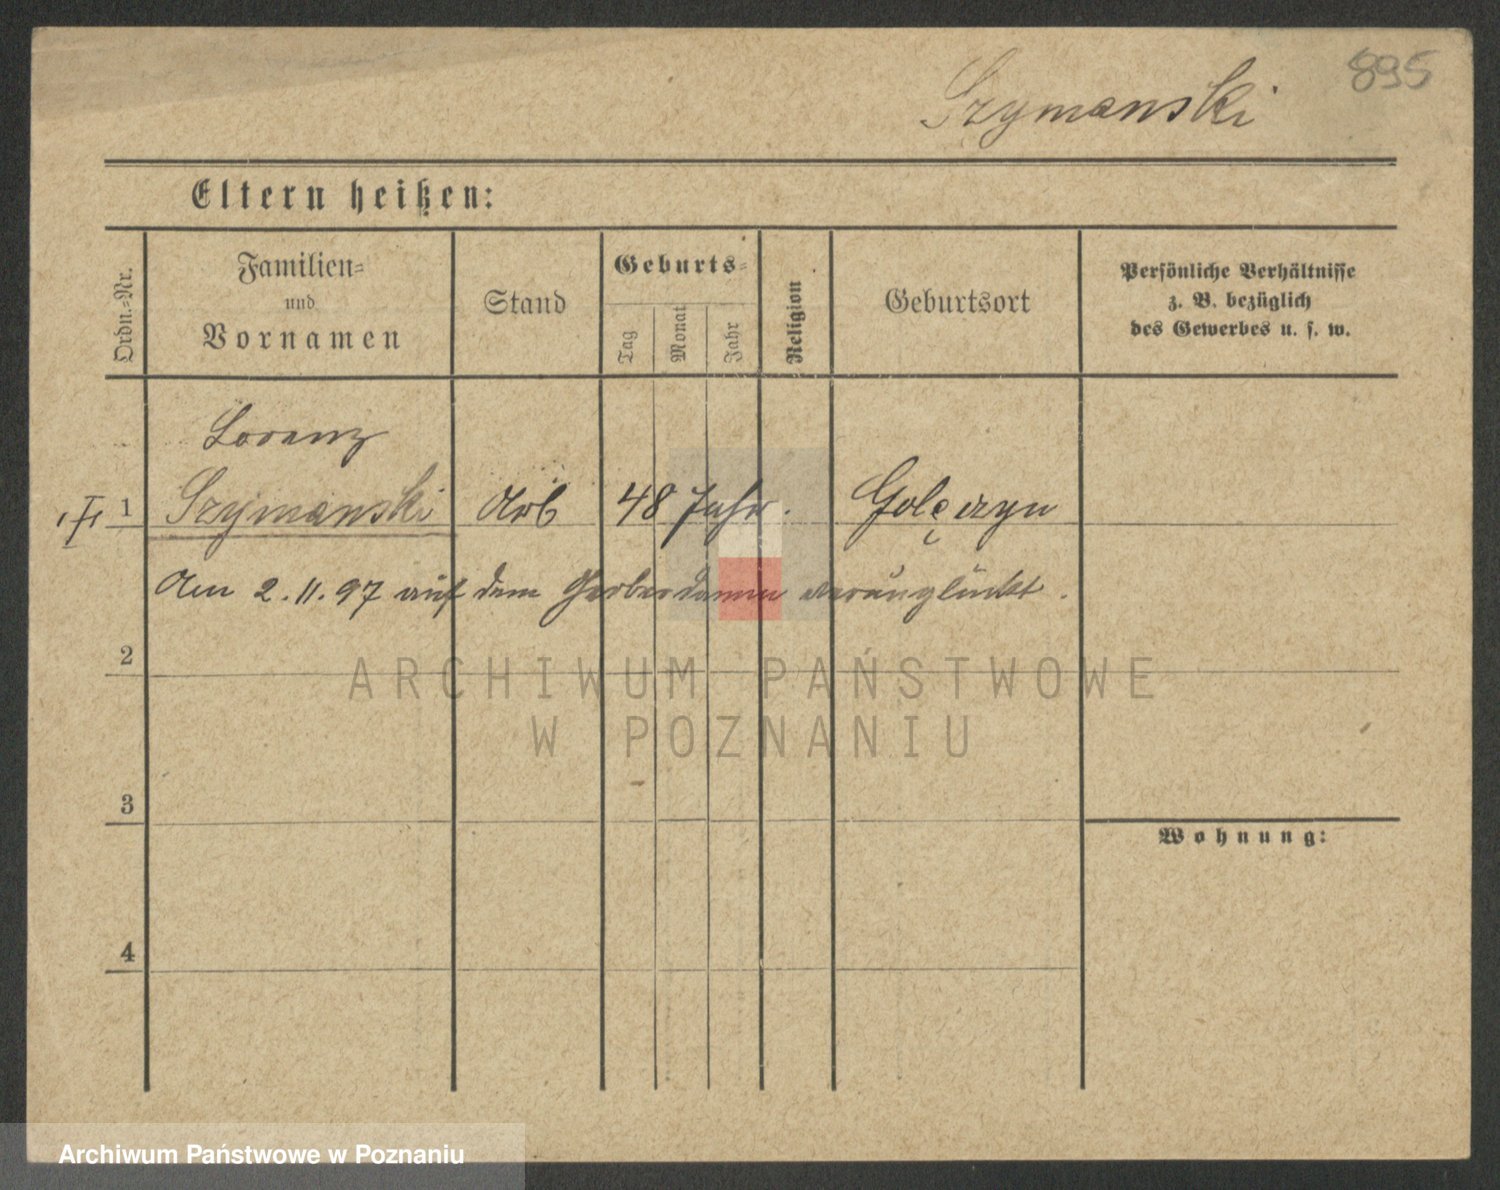 895
Szymanski
Eltern heißen:
Ordn.-Nr.
Familien-
und
Vornamen
Stand
Geburts-
Tag
Monat
Jahr
Religion
Geburtsort
Persönliche Verhältnisse
z. B. bezüglich
des Gewerbes u. s. w.
Lorenz
1 Szymanski Arb 48 Jahr. Golęczyn
Am 2.11.97 auf dem Gerberdamm verunglückt.
2
ARCHIWUM PAŃSTWOWE
W POZNANIU
3
Wohnung:
4
Archiwum Państwowe w Poznaniu